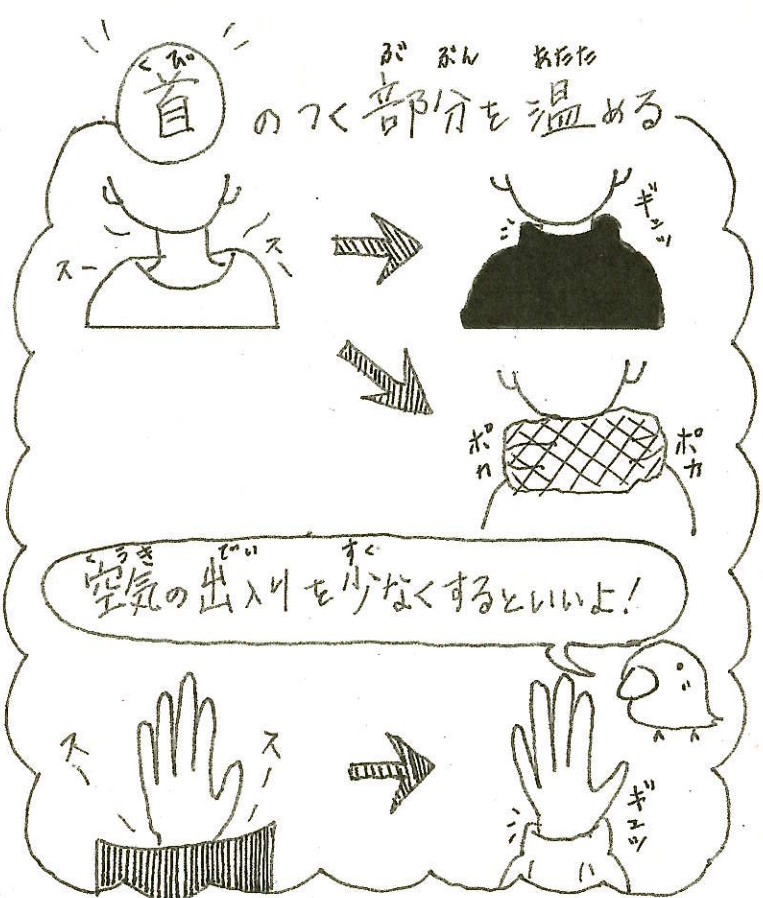 くび ぶ ぶん あたた
首のつく部分を温める
スー
スー
ギュッ
ポカ
ポカ
くうき でい すく
空気の出入りを少なくするといいよ!
スー
スー
ギュッ